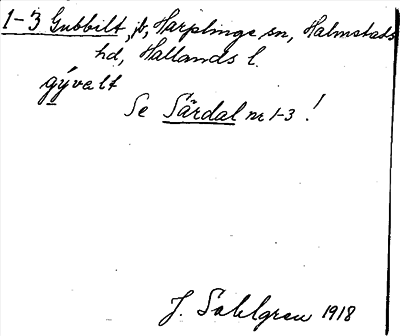 1-3 Gubbilt jb, Harplinge sn, Halmstads
hd, Hallands l.
gývalt
Se Särdal nr 1-3 !
J. Sahlgren 1918